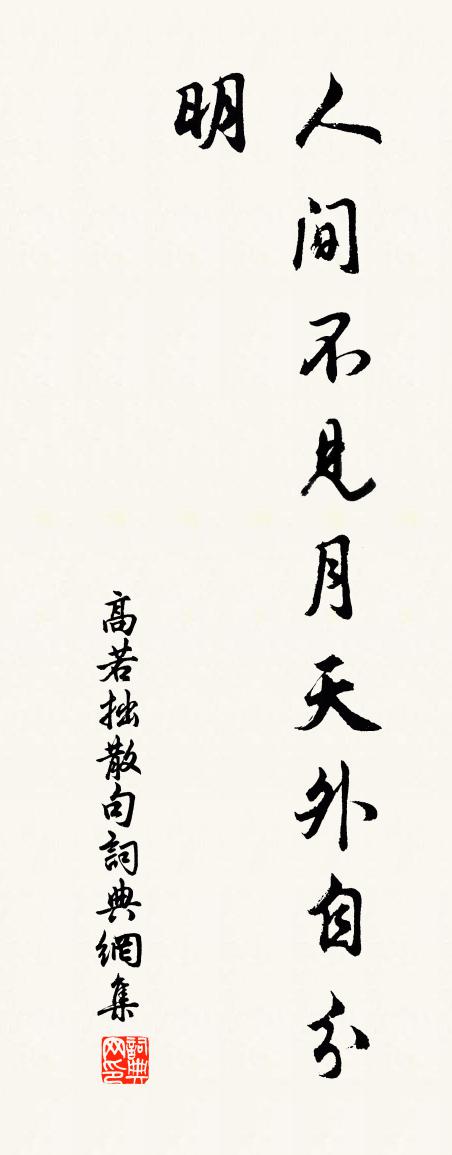 人间不见月天外自分
明
高若拙散句詞典網集
詞典网印